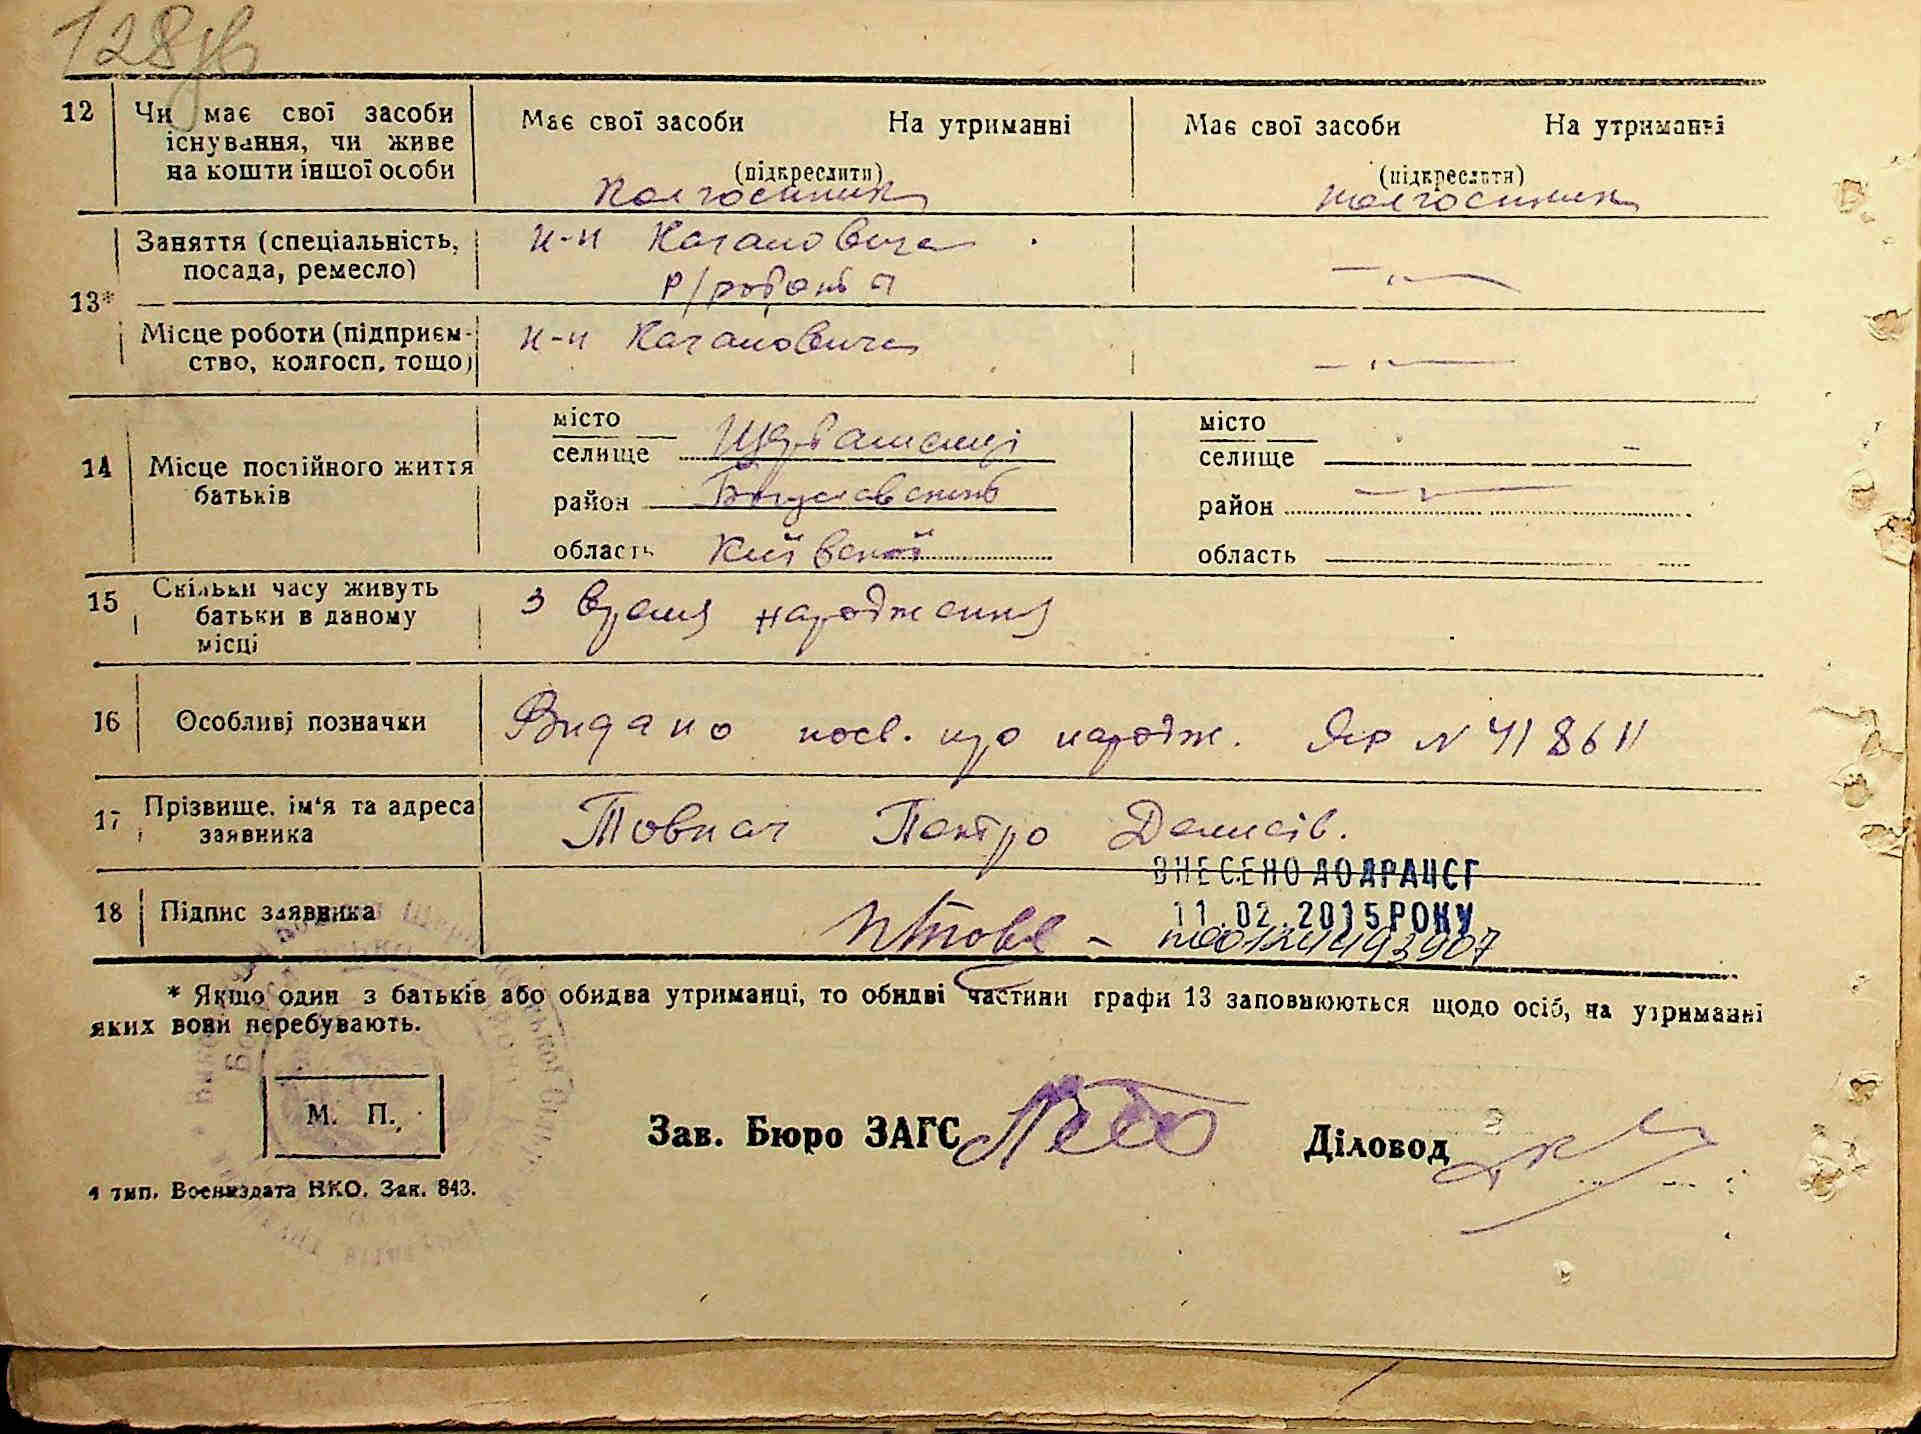 128зв
12 Чи має свої засоби існування, чи живе на кошти іншої особи
Має свої засоби На утриманні
(підкреслити)
Колгоспник
Має свої засоби На утриманні
(підкреслити)
колгоспник
13* Заняття (спеціальність, посада, ремесло)
к-п Кагановича
Р/робота
— " —
Місце роботи (підприємство, колгосп, тощо)
к-п Кагановича
— " —
14 Місце постійного життя батьків
місто
селище
район Богуславський
область Київської
місто
селище
район — " —
область
15 Скільки часу живуть батьки в даному місці
З время народження
16 Особливі позначки
Видано посв. про народж. N 418611
17 Прізвище, ім'я та адреса заявника
Товкач Петро Денисів.
ВНЕСЕНО ДО ДРАЦСГ
18 Підпис заявника
11.02.2015 РОКУ
* Якщо один з батьків або обидва утриманці, то обидві частини графи 13 заповнюються щодо осіб, на утриманні
яких вони перебувають.
М. П.
Зав. Бюро ЗАГС
Діловод
4 тип. Воениздата НКО. Зак. 843.